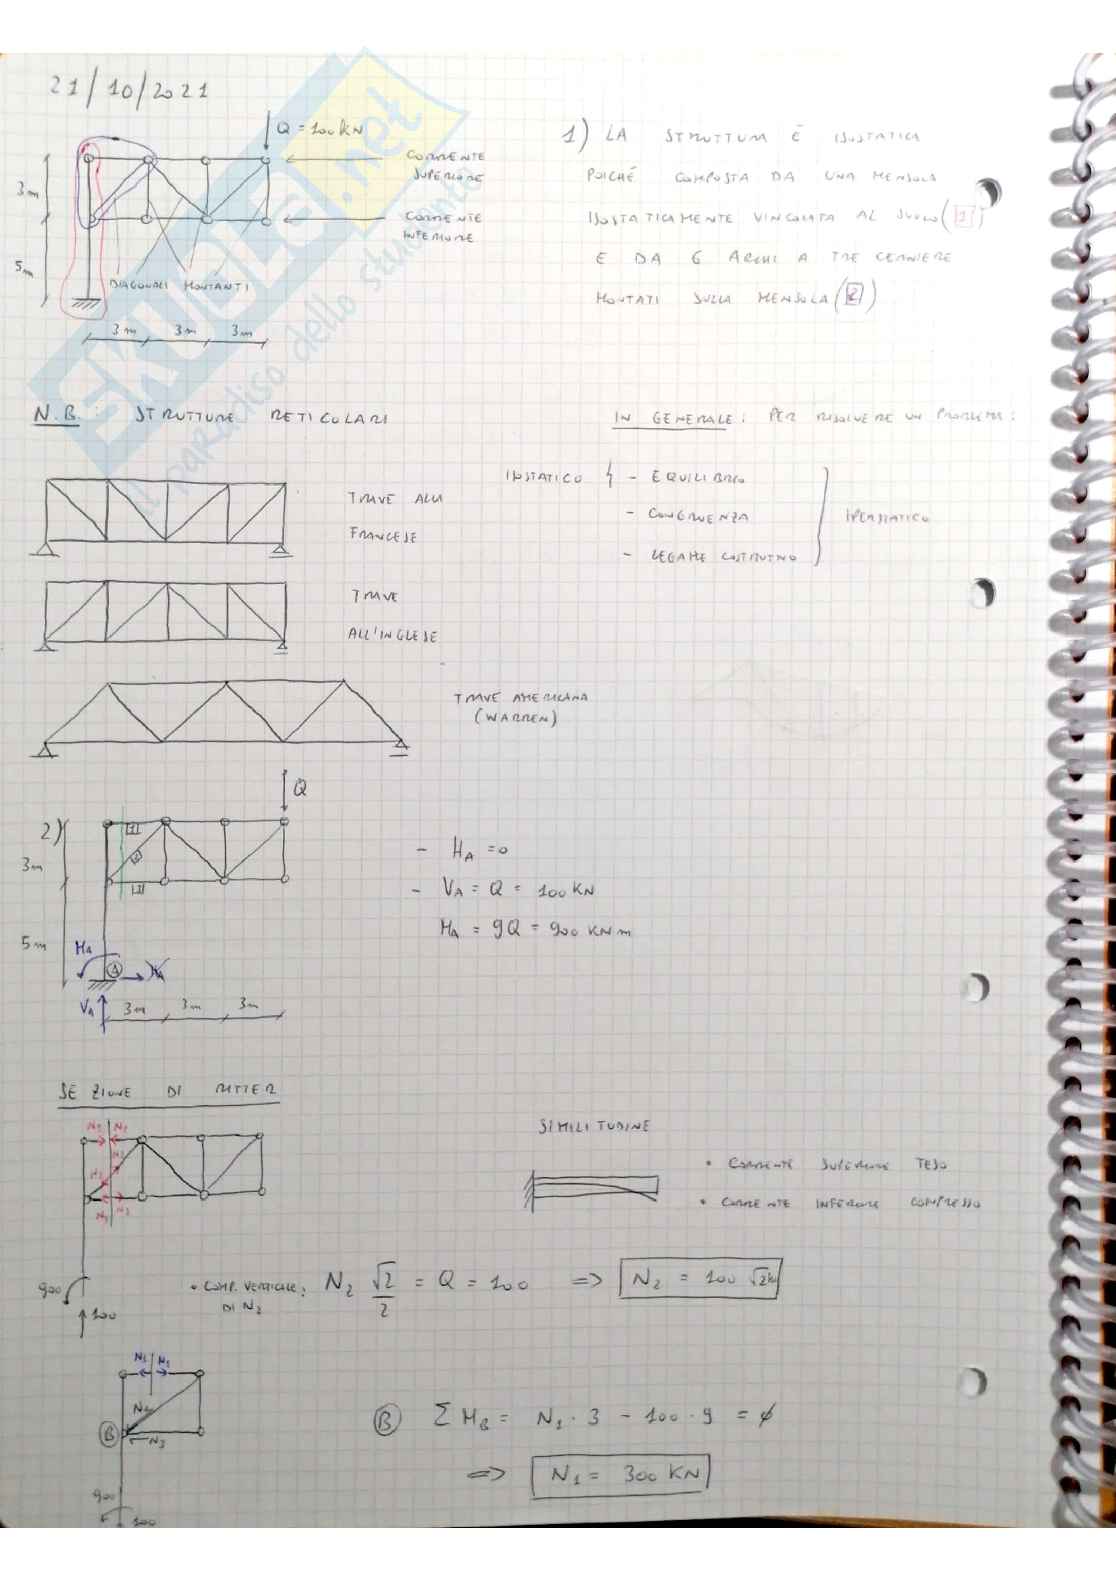 21/10/2021
Q = 100 KN
CORRENTE
SUPERIORE
CORRENTE
INFERIORE
3m
5m
DIAGONALI MONTANTI
3m 3m 3m
1) LA STRUTTURA È ISOSTATICA
POICHÉ COMPOSTA DA UNA MENSOLA
ISOSTATICAMENTE VINCOLATA AL SUOLO (1)
E DA 6 ARCHI A TRE CERNIERE
MONTATI SULLA MENSOLA (2)
SKUOLA.net
il paradiso dello studente
N.B. STRUTTURE RETICOLARI
IN GENERALE: PER RISOLVERE UN PROBLEMA:
ISOSTATICO { - EQUILIBRIO
- CONGRUENZA
- LEGAME COSTITUTIVO
IPERSTATICO
TRAVE ALLA
FRANCESE
TRAVE
ALL'INGLESE
TRAVE AMERICANA
(WARREN)
2)
Q
1
2
3
3m
5m
MA
A
HA
VA
3m 3m 3m
- HA = 0
- VA = Q = 100 KN
MA = 9Q = 900 KN m
SEZIONE DI RITTER
N1 N1
N2
N2
N3 N3
900
100
SIMILITUDINE
• CORRENTE SUPERIORE TESO
• CORRENTE INFERIORE COMPRESSO
• COMP. VERTICALE: N2 √2/2 = Q = 100 => N2 = 100 √2 KN
DI N2
N1 N1
N2
B
N3
900
100
B ΣMB = N1 · 3 - 100 · 9 = 0
=> N1 = 300 KN